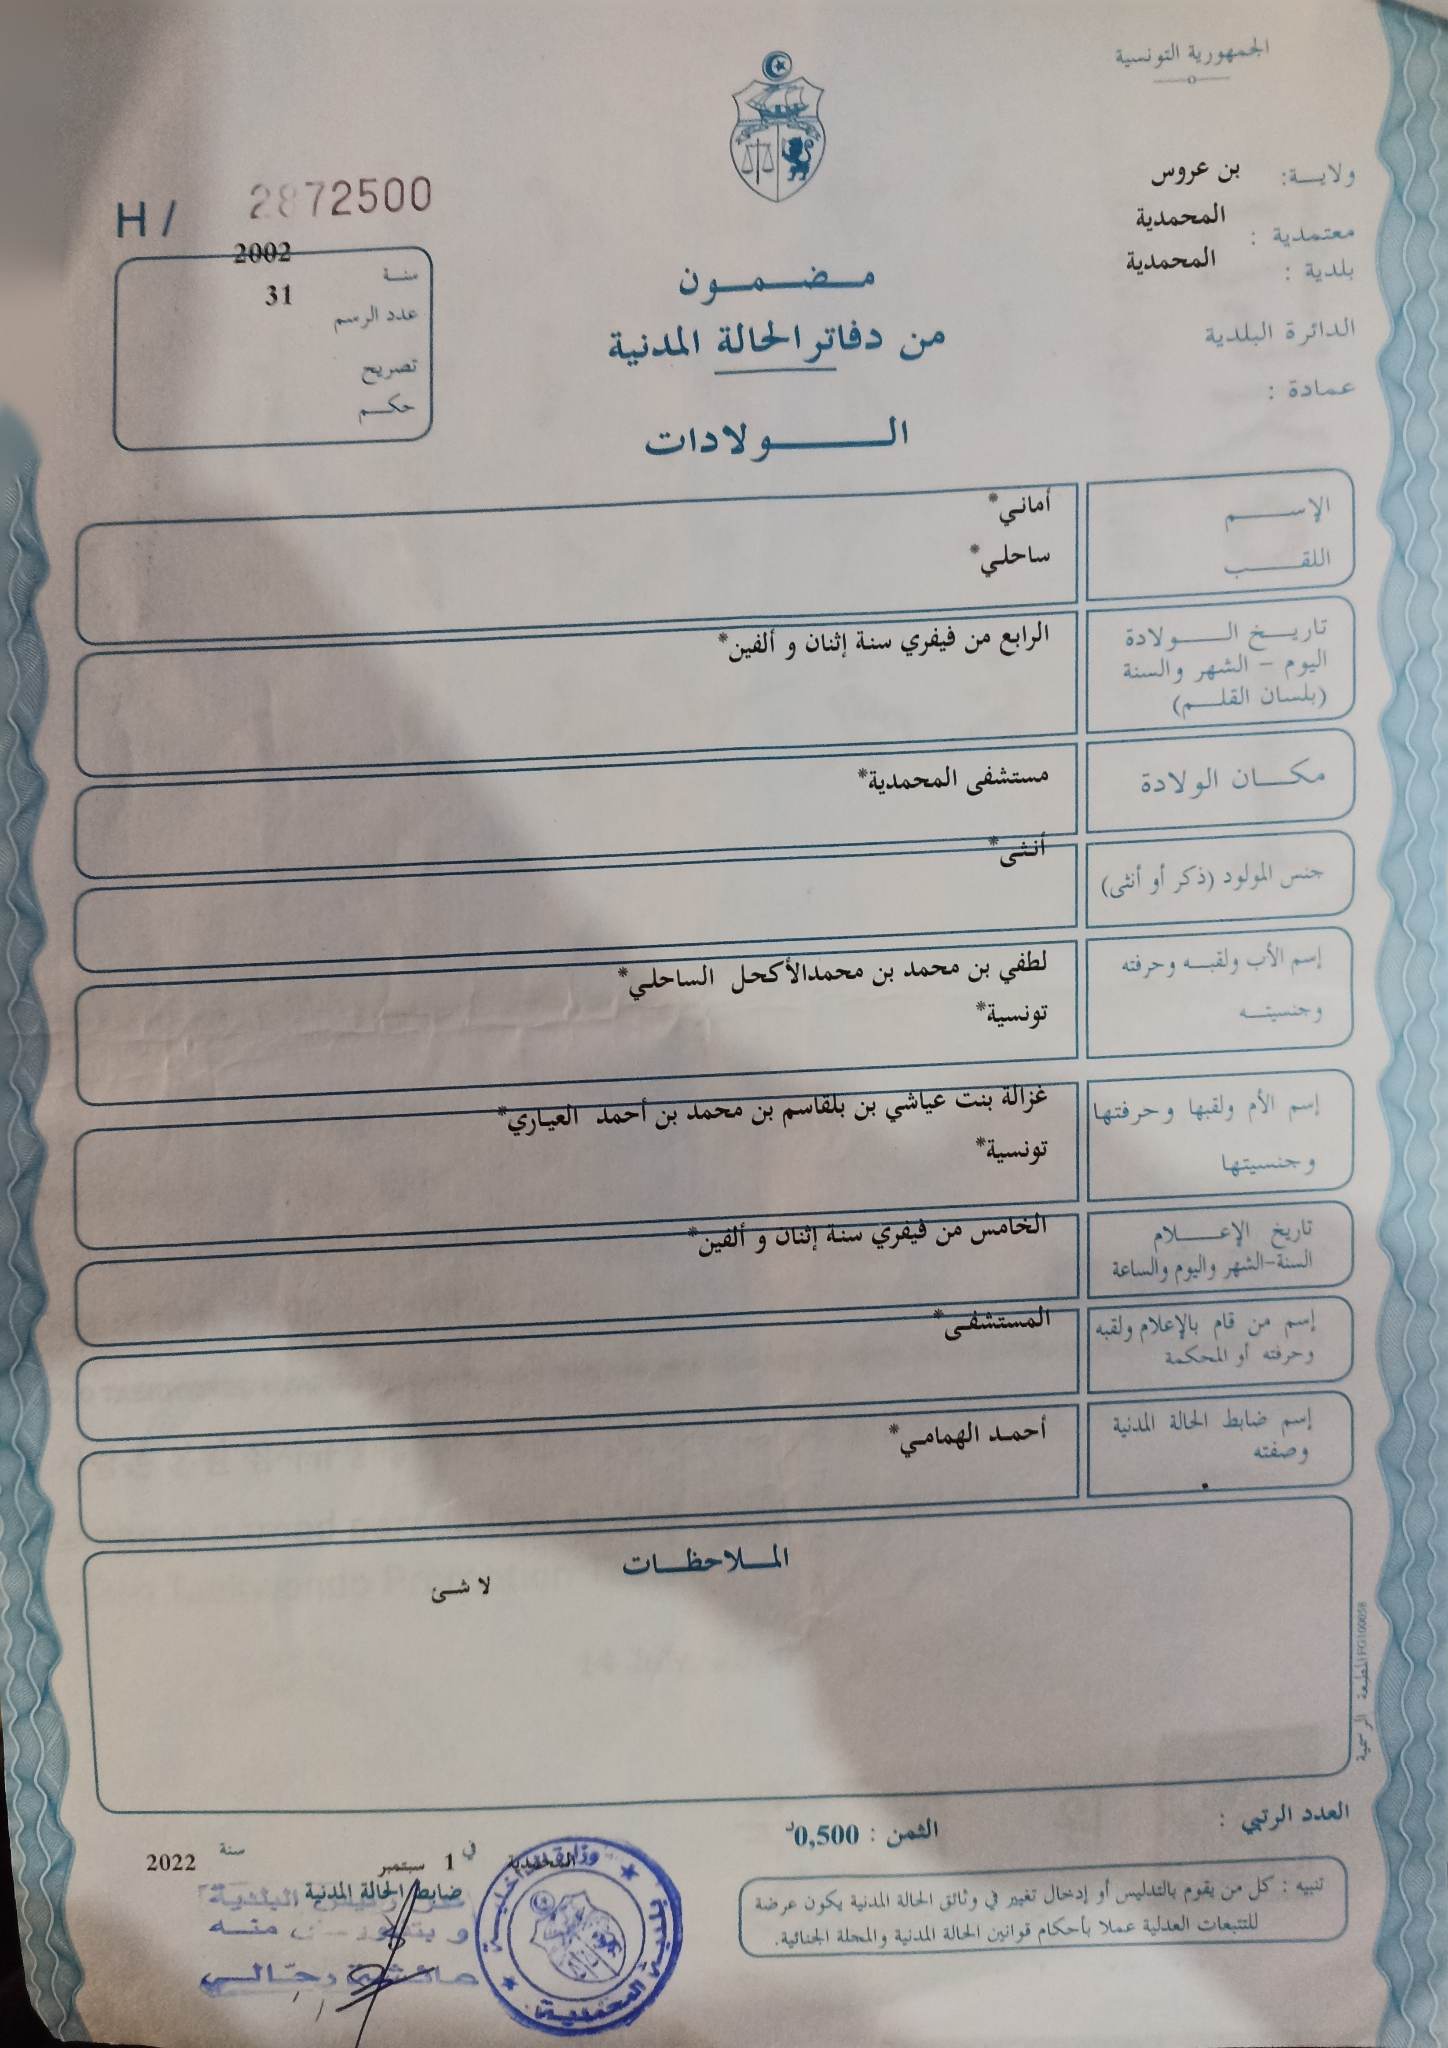 الجمهورية التونسية
ولايـــة: بن عروس
معتمدية : المحمدية
بلدية : المحمدية
الدائرة البلدية
عمادة :
H / 2872500
سنـة 2002
عدد الرسم 31
تصريح
حكـــم
مـــضـــمـــون
من دفاتر الحالة المدنية
الـــــــولادات
الإســـــم أماني*
اللقـــــب ساحلي*
تاريـــخ الـــــولادة
اليوم - الشهر والسنة
(بلسان القلـــم)
الرابع من فيفري سنة إثنان و ألفين*
مكـــان الولادة مستشفى المحمدية*
جنس المولود (ذكر أو أنثى) أنثى*
إسم الأب ولقبـــه وحرفته لطفي بن محمد بن محمدالأكحل الساحلي*
وجنسيتـــه تونسية*
إسم الأم ولقبها وحرفتها غزالة بنت عياشي بن بلقاسم بن محمد بن أحمد العياري*
وجنسيتها تونسية*
تاريخ الإعـــــلام
السنة-الشهر واليوم والساعة
الخامس من فيفري سنة إثنان و ألفين*
إسم من قام بالإعلام ولقبه
وحرفته أو المحكمة
المستشفى*
إسم ضابط الحالة المدنية
وصفته
أحمد الهمامي*
المـــلاحظـــات
لا شئ
المطبعة الرسمية FG100058
العدد الرتبي :
الثمن : 0,500د
تنبيه : كل من يقوم بالتدليس أو إدخال تغيير في وثائق الحالة المدنية يكون عرضة
للتتبعات العدلية عملا بأحكام قوانين الحالة المدنية والمجلة الجنائية.
المحمدية في 1 سبتمبر سنة 2022
ضابط الحالة المدنية
وزارة الداخلية
المحمدية
البلدية
منـــه